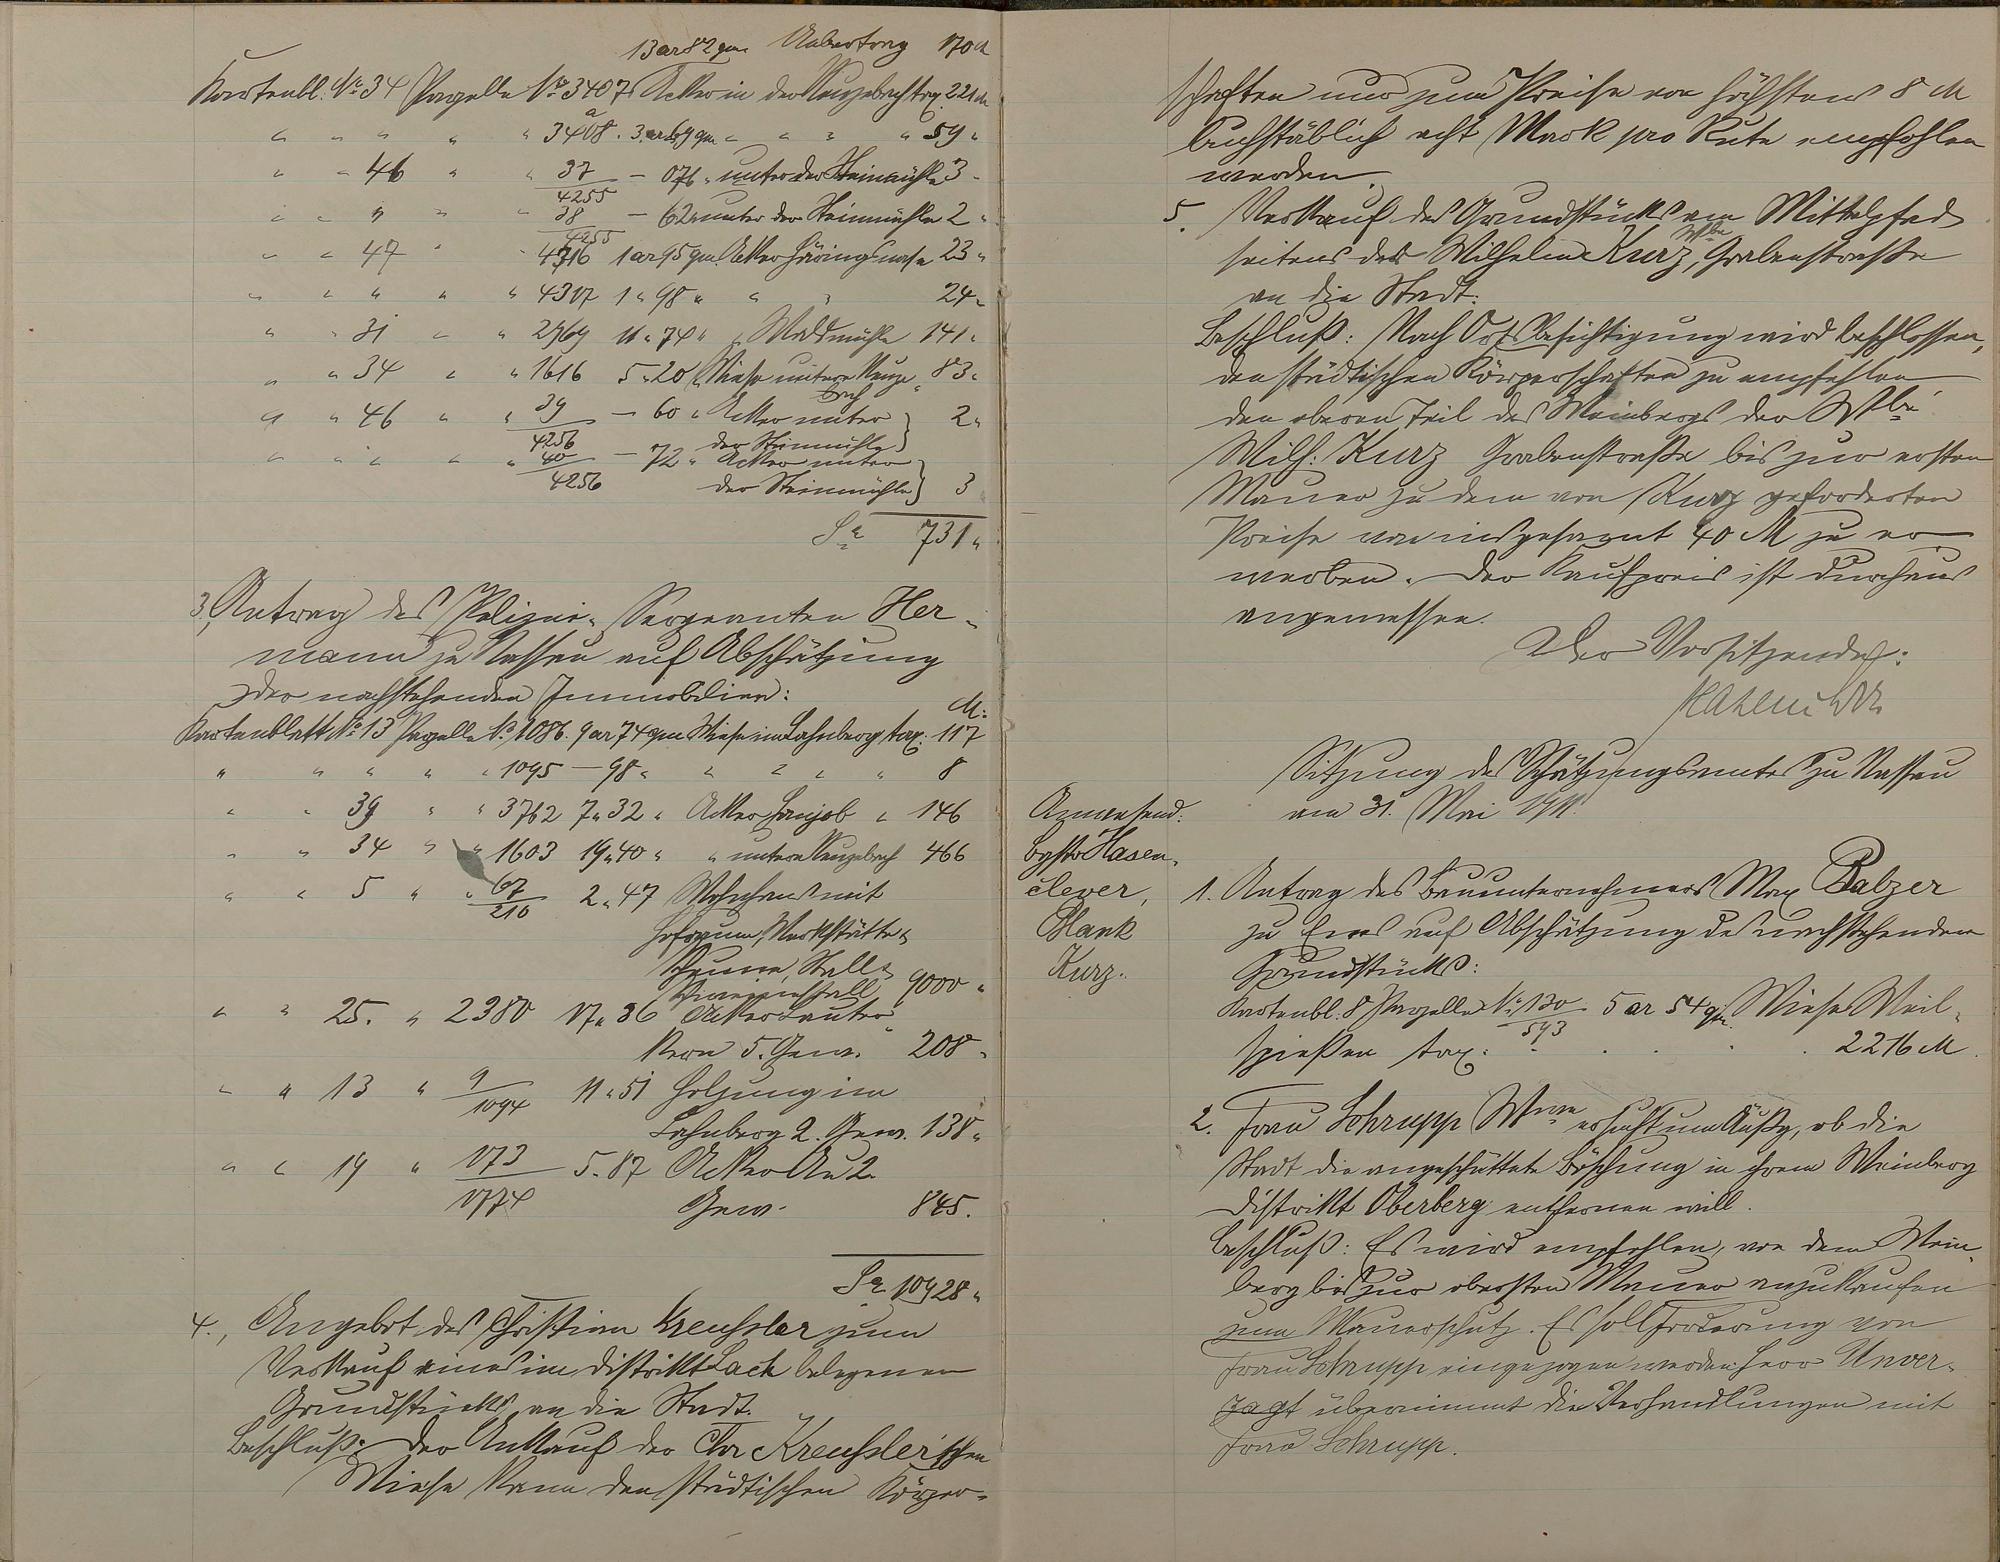 13 ar 82 qm Uebertrag 170 M
Kartenbl. No 34 Parzelle No 3407 Acker in der Neuzebach tax. 221 M
" " " " " 3408 a 3 ar 69 qm " " " " 59 "
" " 46 " " 37/4255 — 076 " unter der Steinmühle 3 "
" " " " " 38/4255 — 62 " unter der Steinmühle 2 "
" " 47 " " 4316 1 ar 95 qm Acker Häringsnase 23 "
" " " " " 4317 1 " 98 " " " 24 "
" " 31 " " 2969 11 " 74 " " Waldmühle 141 "
" " 34 " " 1616 5 " 20 " Wiese untere Neuze- 83 "
bach
" " 46 " " 39/4256 — 60 " Acker unter 2 "
der Steinmühle
" " " " " 40/4256 — 72 " Acker unter
der Steinmühle 3
Sa 731 "
3, Antrag des Polizei-Sergeanten Her-
mann zu Nassau auf Abschätzung
der nachstehenden Immobilien:
M:
Kartenblatt No 13 Parzelle No 1086. 9 ar 74 qm Wiese im Lahnberg tax. 117
" " " " " 1095 — 98 " " " " " 8
" " 39 " " 3762 7 " 32 " Acker " 146
" " 34 " " 1603 19 " 40 " " untere Neuzebach 466
" " 5 " " 67/210 2 " 47 Wohnhaus mit
Hofraum, Werkstätte,
Scheune, Stall,
Schweinestall 9000 "
" " 25. " 2380 17 " 36 Acker Lauter
Kern 5. Gew. 208 "
" " 13 " 9/1094 11 " 51 Holzung im
Lahnberg 2. Gew. 138 "
" " 19 " 173/1774 5. 87 Acker Au 2.
Gew. 845.
Sa 10928 "
4., Angebot des Christian Kreussler zum
Verkauf eines im Distrikt Lach belegenen
Grundstücks an die Stadt.
Beschluß: Der Ankauf der Chr. Kreussler'schen
Wiese kann den städtischen Körper-
schaften nur zum Preise von höchstens 8 M
buchstäblich acht Mark pro Rute empfohlen
werden.
5. Verkauf des Grundstücks am Mittelpfad
seitens des Wilhelm Kurz Wwe, Grabenstraße
an die Stadt.
Beschluß: Nach Ortsbesichtigung wird beschlossen,
den städtischen Körperschaften zu empfehlen
den oberen Teil des Weinbergs der Wwe
Wilh. Kurz Grabenstraße bis zur ersten
Mauer zu dem von Kurz geforderten
Preise von insgesamt 40 M zu er-
werben. Der Kaufpreis ist durchaus
angemessen.
Der Vorsitzende:
Hasenclever
Sitzung des Schätzungsamtes zu Nassau
am 31. Mai 1911.
Anwesend:
Bgstr Hasen-
clever,
Plank
Kurz.
1. Antrag des Bauunternehmers Max Balzer
zu Ems auf Abschätzung des nachstehenden
Grundstücks:
Kartenbl. 8 Parzelle No 130/593 5 ar 54 qm Wiese Weil-
spießen tax: . . . . 2216 M.
2. Frau Schrupp Wwe ersucht um Äußg, ob die
Stadt die angeschüttete Böschung in ihrem Weinberg
Distrikt Oberberg entfernen will.
Beschluß: Es wird empfohlen, von dem Wein-
berg bis zur obersten Mauer anzukaufen
zum Mauerschutz. Es soll Forderung von
Frau Schrupp eingezogen werden. Herr Unver-
zagt übernimmt die Verhandlungen mit
Frau Schrupp.